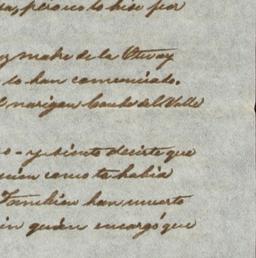 pero no lo hice por
madre de la
lo han comunicado.
navegan Cauto del Valle
o - y siento decirte que
como te había
Tambien han muerto
in quien encargó que